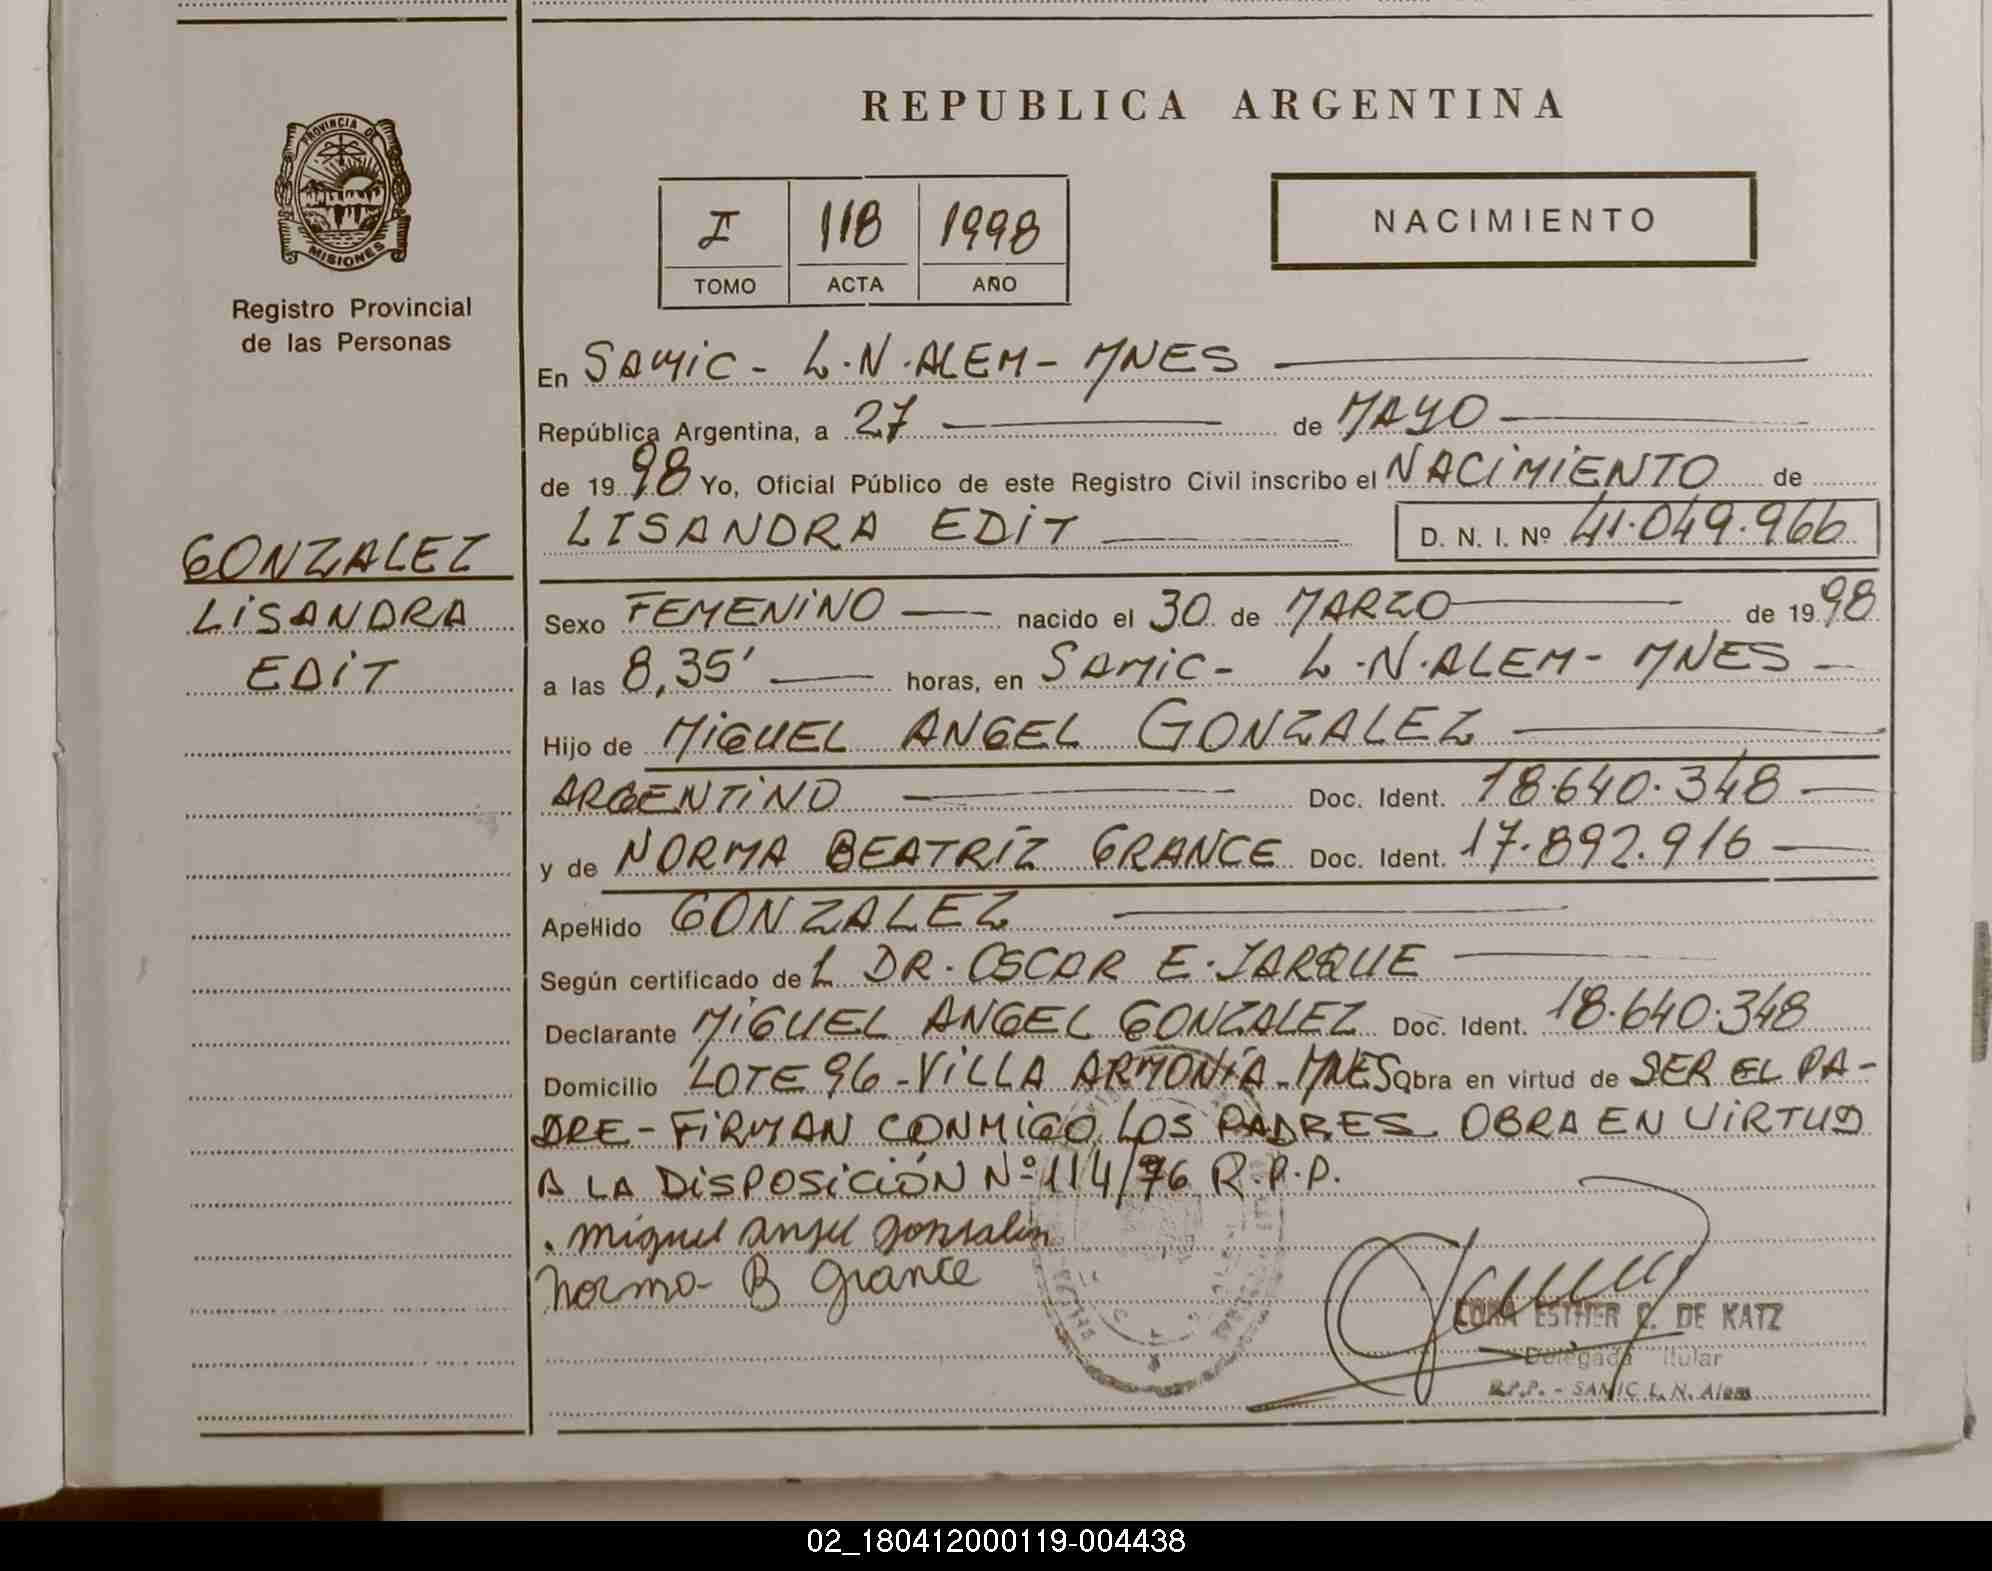 REPUBLICA ARGENTINA
PROVINCIA DE
MISIONES
Registro Provincial
de las Personas
I 118 1998
TOMO ACTA AÑO
NACIMIENTO
GONZALEZ
LISANDRA
EDIT
En SAMIC - L.N.ALEM - MNES
República Argentina, a 27 de MAYO
de 1998 Yo, Oficial Público de este Registro Civil inscribo el NACIMIENTO de
LISANDRA EDIT D. N. I. Nº 41.049.966
Sexo FEMENINO nacido el 30 de MARZO de 1998
a las 8,35' horas, en SAMIC - L.N.ALEM - MNES
Hijo de MIGUEL ANGEL GONZALEZ
ARGENTINO Doc. Ident. 18.640.348
y de NORMA BEATRIZ GRANCE Doc. Ident. 17.892.916
Apellido GONZALEZ
Según certificado de L DR. OSCAR E. JARQUE
Declarante MIGUEL ANGEL GONZALEZ Doc. Ident. 18.640.348
Domicilio LOTE 96 - VILLA ARMONÍA - MNES Obra en virtud de SER EL PA-
DRE - FIRMAN CONMIGO LOS PADRES OBRA EN VIRTUD
A LA DISPOSICIÓN Nº 114/76 R.P.P.
Miguel Angel Gonzalez
Norma B Grance
ESTHER C. DE KATZ
Delegada Titular
R.P.P. - SAMIC L. N. Alem
02_180412000119-004438